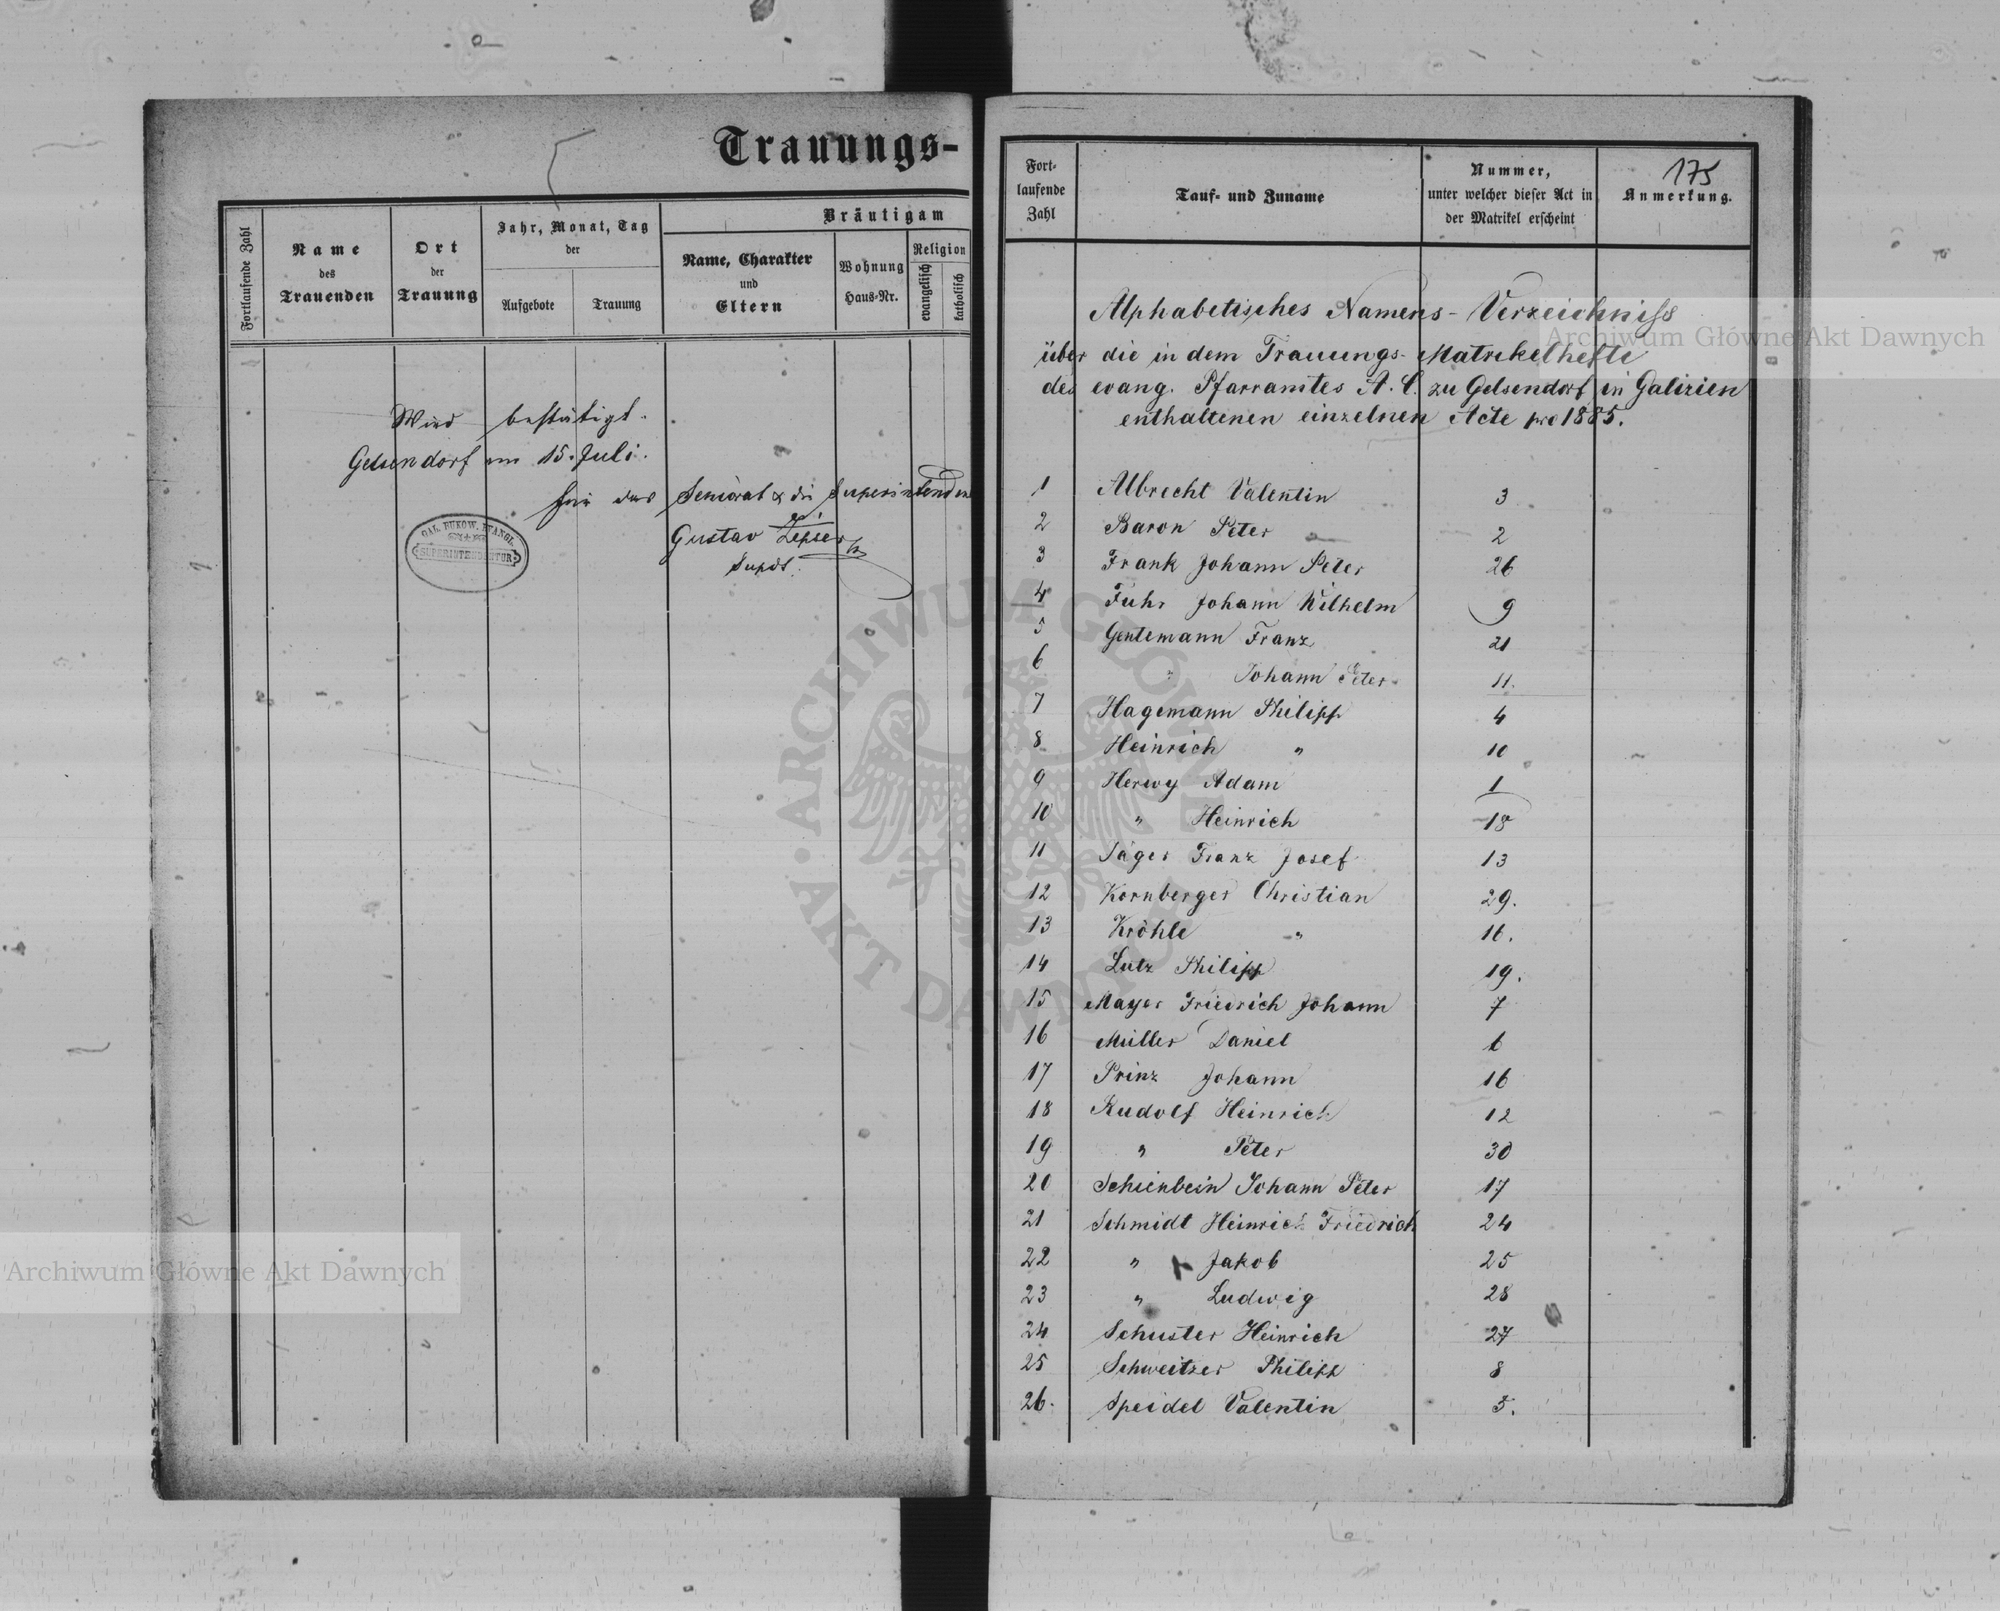 Trauungs-
Fortlaufende Zahl
Name
des
Trauenden
Ort
der
Trauung
Jahr, Monat, Tag
der
Aufgebote
Trauung
Bräutigam
Name, Charakter
und
Eltern
Wohnung
Haus-Nr.
Religion
evangelisch
katholisch
Wird bestätigt.
Gelsendorf am 15. Juli.
für das Seniorat & die Superintendenz
Gustav
Supdt.
GAL. BUKOW. EVANGL.
SUPERINTENDENTUR
175
Fort-
laufende
Zahl
Tauf- und Zuname
Nummer,
unter welcher dieser Act in
der Matrikel erscheint
Anmerkung.
Alphabetisches Namens-Verzeichniss
über die in dem Trauungs-Matrikelhefte
des evang. Pfarramtes A. C. zu Gelsendorf in Galizien
enthaltenen einzelnen Acte pro 1885.
1 Albrecht Valentin 3
2 Baron Peter 2
3 Frank Johann Peter 26
4 Fuhr Johann Wilhelm 9
5 Gentemann Franz 21
6 " Johann Peter 11.
7 Hagemann Philipp 4
8 Heinrich " 10
9 Herwy Adam 1
10 " Heinrich 18
11 Jäger Franz Josef 13
12 Kornberger Christian 29.
13 Kröhle " 16.
14 Lutz Philipp 19.
15 Mayer Friedrich Johann 7
16 Müller Daniel 6
17 Prinz Johann 16
18 Rudolf Heinrich 12
19 " Peter 30
20 Schienbein Johann Peter 17
21 Schmidt Heinrich Friedrich 24
22 " Jakob 25
23 " Ludwig 28
24 Schuster Heinrich 27
25 Schweitzer Philipp 8
26. Speidel Valentin 5.
Archiwum Główne Akt Dawnych
Archiwum Główne Akt Dawnych
ARCHIWUM GŁÓWNE · AKT DAWNYCH